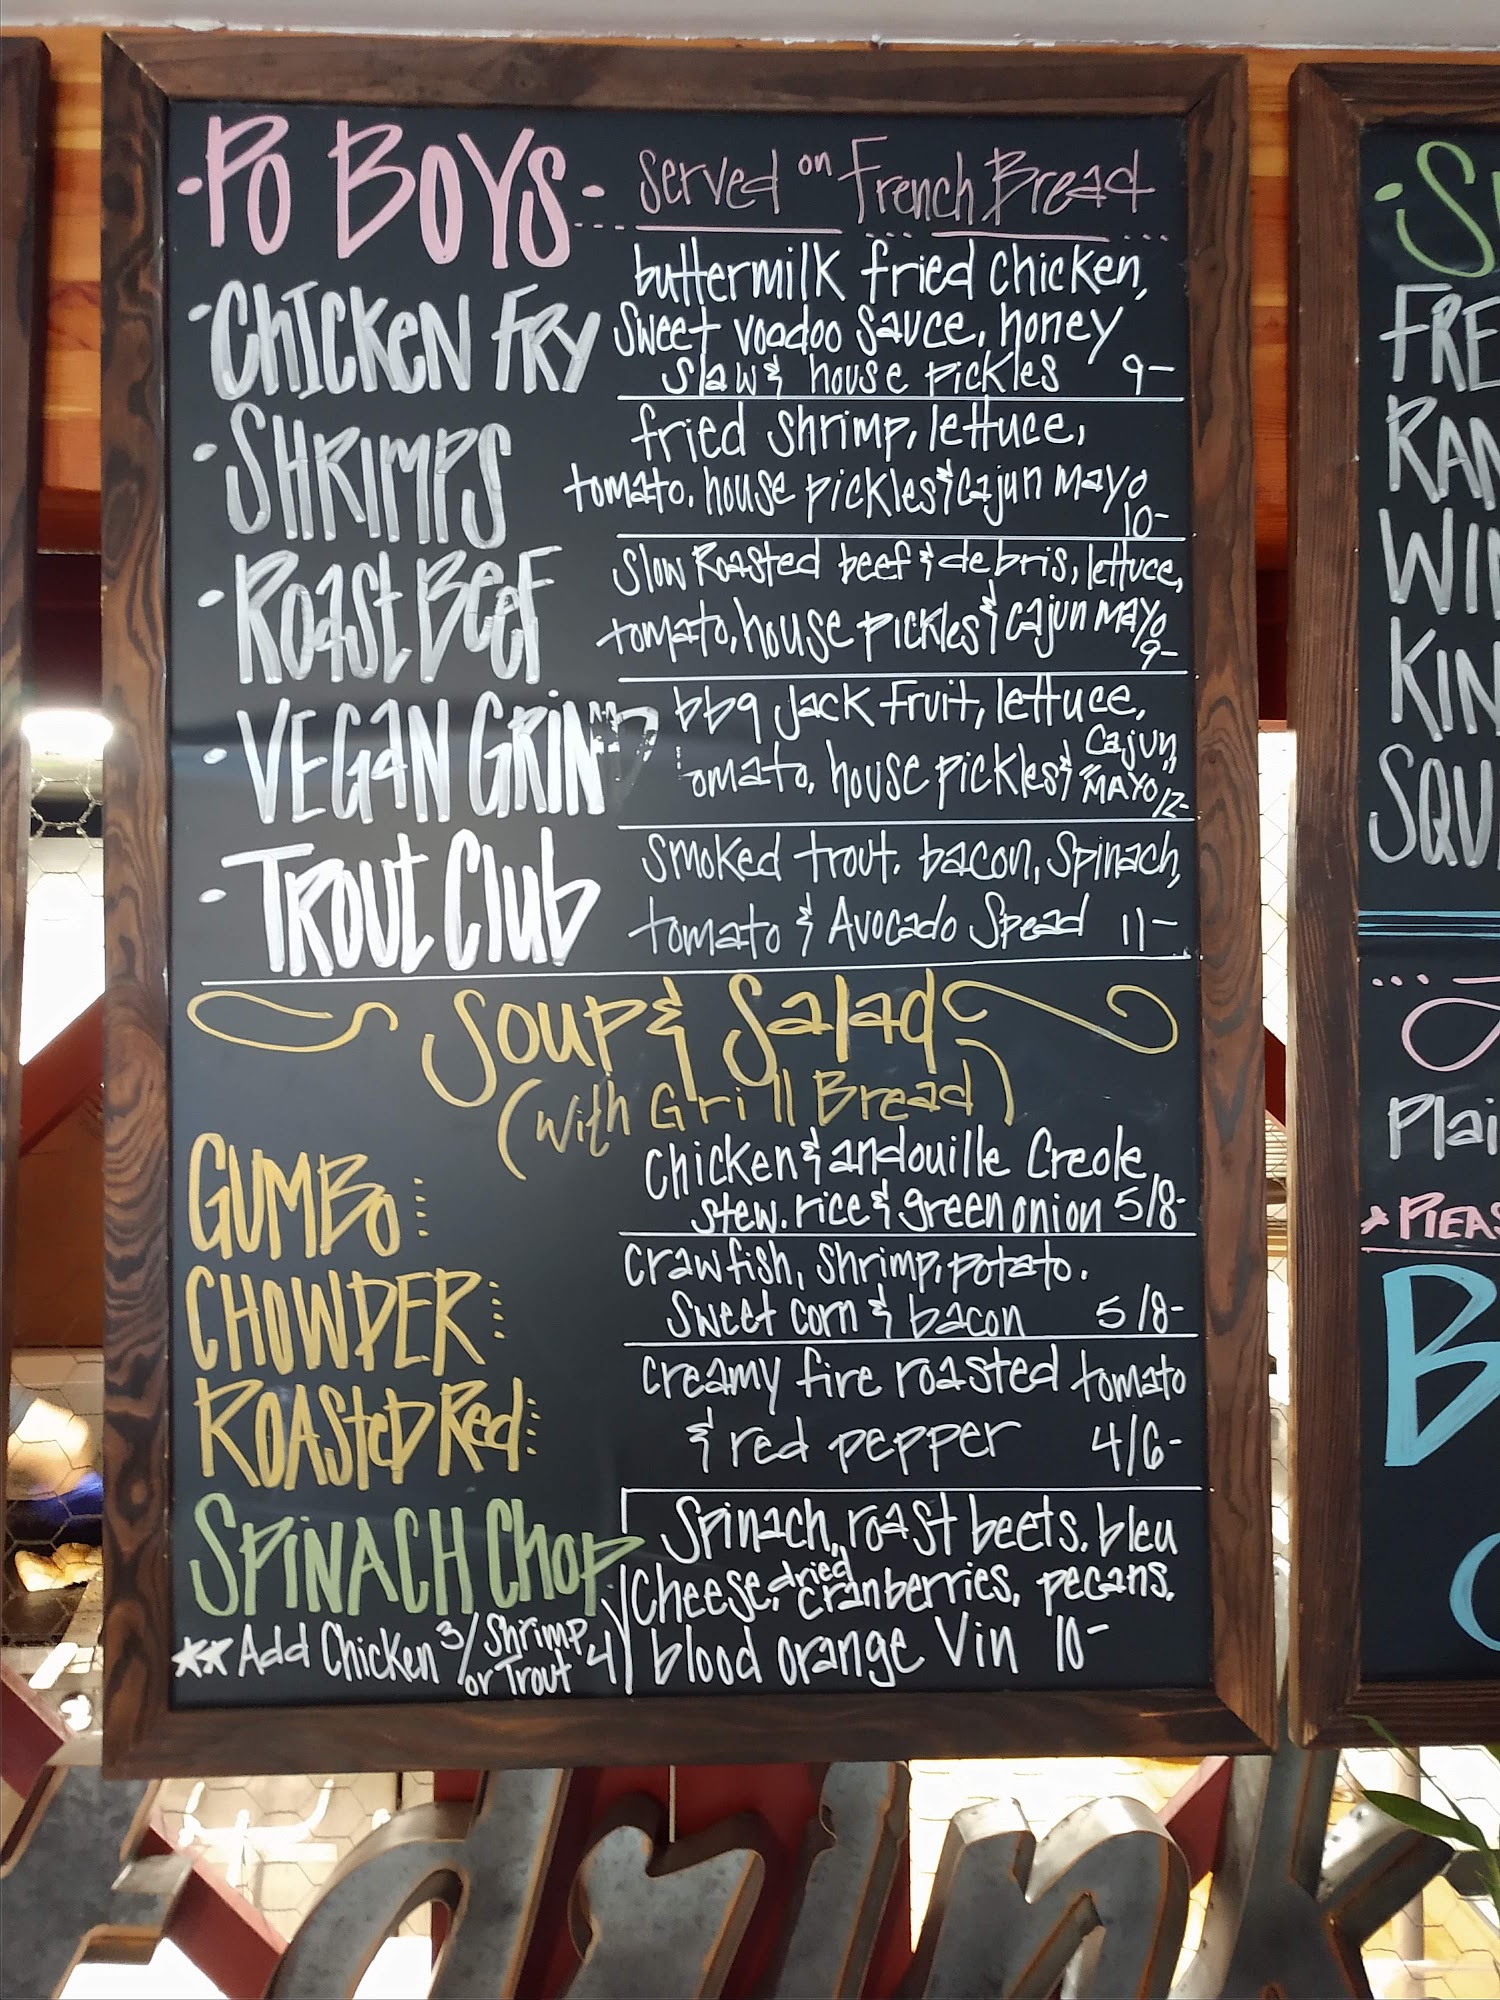 ·PO BOYS· served on French Bread
·CHICKEN FRY
buttermilk fried chicken,
sweet voodoo sauce, honey
slaw & house pickles 9-
·SHRIMPS
fried shrimp, lettuce,
tomato, house pickles & cajun mayo
10-
·ROAST BEEF
Slow Roasted beef & debris, lettuce,
tomato, house pickles & cajun mayo
9-
·VEGAN GRIND
bbq Jack Fruit, lettuce,
omato, house pickles & cajun
"MAYO" 12-
·TROUT Club
smoked trout, bacon, spinach,
tomato & Avocado Spead 11-
Soup & Salad
(with Grill Bread)
GUMBO
chicken & andouille Creole
stew, rice & green onion 5/8-
CHOWDER
crawfish, shrimp, potato,
sweet corn & bacon 5/8-
ROASTED Red
creamy fire roasted tomato
& red pepper 4/6-
SPINACH Chop
Spinach, roast beets, bleu
cheese, dried cranberries, pecans,
blood orange Vin 10-
** Add Chicken 3/ Shrimp
or Trout 4
FRE
RAN
WIN
KIN
SQU
Plai
* PLEAS
B
drink